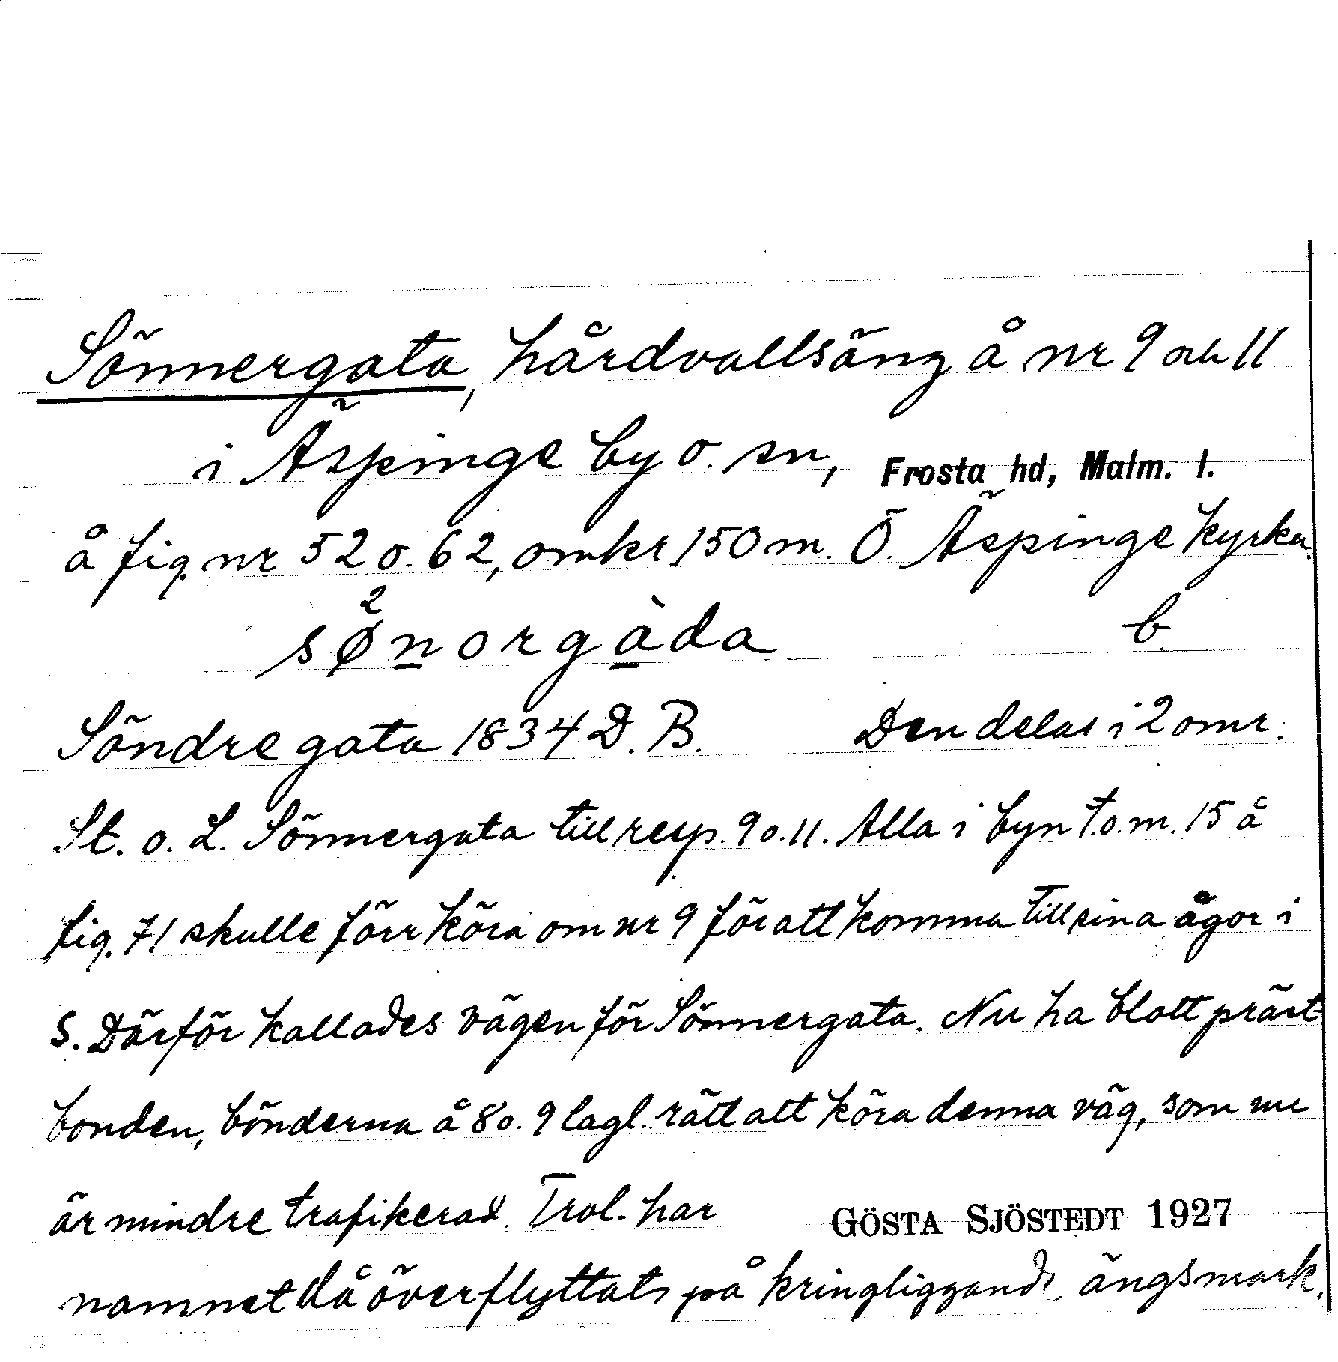 Sönnergata, hårdvallsäng å nr 9 och 11
i Äspinge by o. sn, Frosta hd, Malm. l.
å fig. nr 52 o. 62, omkr 150 m. Ö. Äspinge kyrka.
sø²norgàda b.
Söndre gata 1834 D. B. Den delas i 2 omr.
St. o. L. Sönnergata till resp. 9 o. 11. Alla i byn t.o.m. 15 å
fig. 71 skulle förr köra om nr 9 för att komma till sina ägor i
S. Därför kallades vägen för Sönnergata. Nu ha blott präst-
bonden, bönderna å 8 o. 9 lagl. rätt att köra denna väg, som nu
är mindre trafikerad. Trol. har GÖSTA SJÖSTEDT 1927
namnet då överflyttats på kringliggande ängsmark.